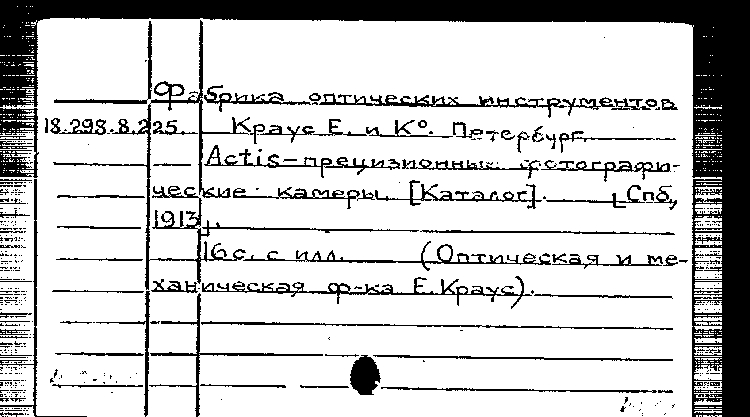 Фабрика оптических инструментов
18.298.8.225. Краус Е. и К°. Петербург.
Actis-прецизионные фотографи-
ческие камеры. [Каталог]. [Спб,
1913].
16 с. с илл. (Оптическая и ме-
ханическая ф-ка Е. Краус).